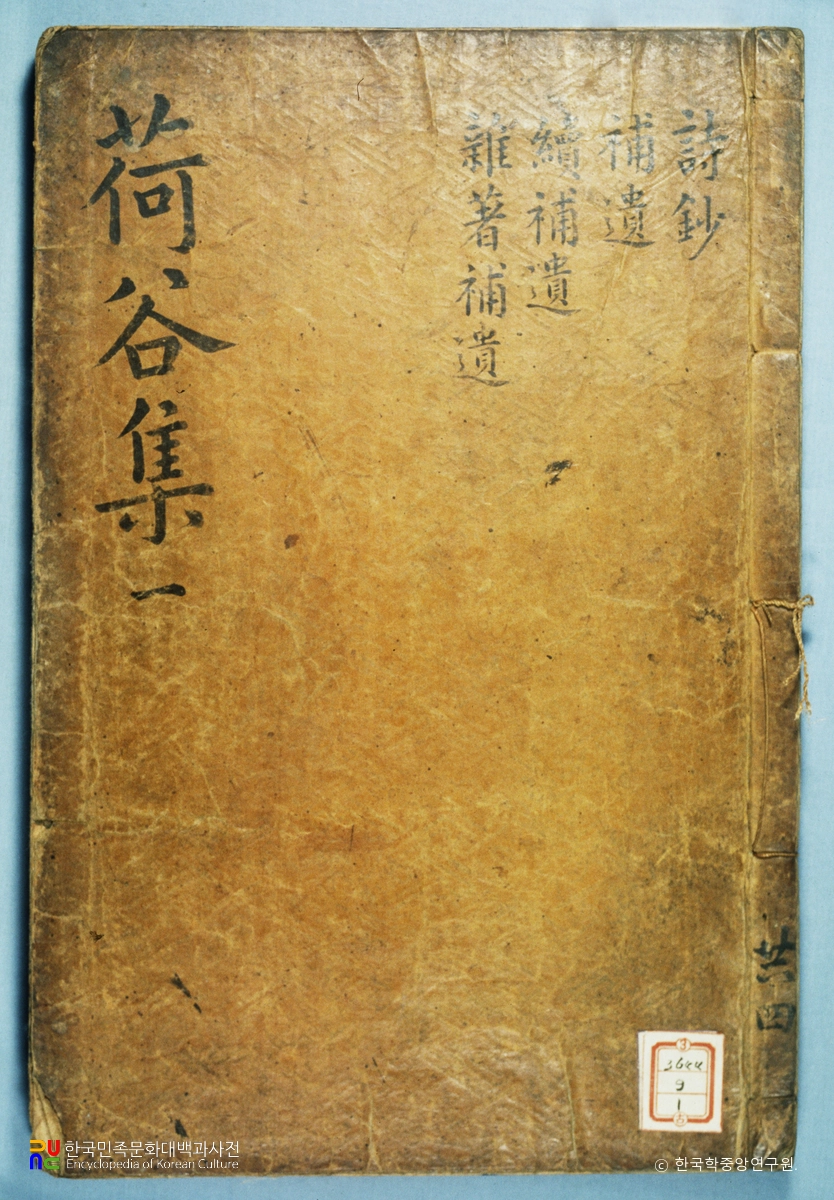 詩鈔
補遺
續補遺
雜著補遺
荷谷集 一
共四
3644
9
1
한국민족문화대백과사전
Encyclopedia of Korean Culture
© 한국학중앙연구원